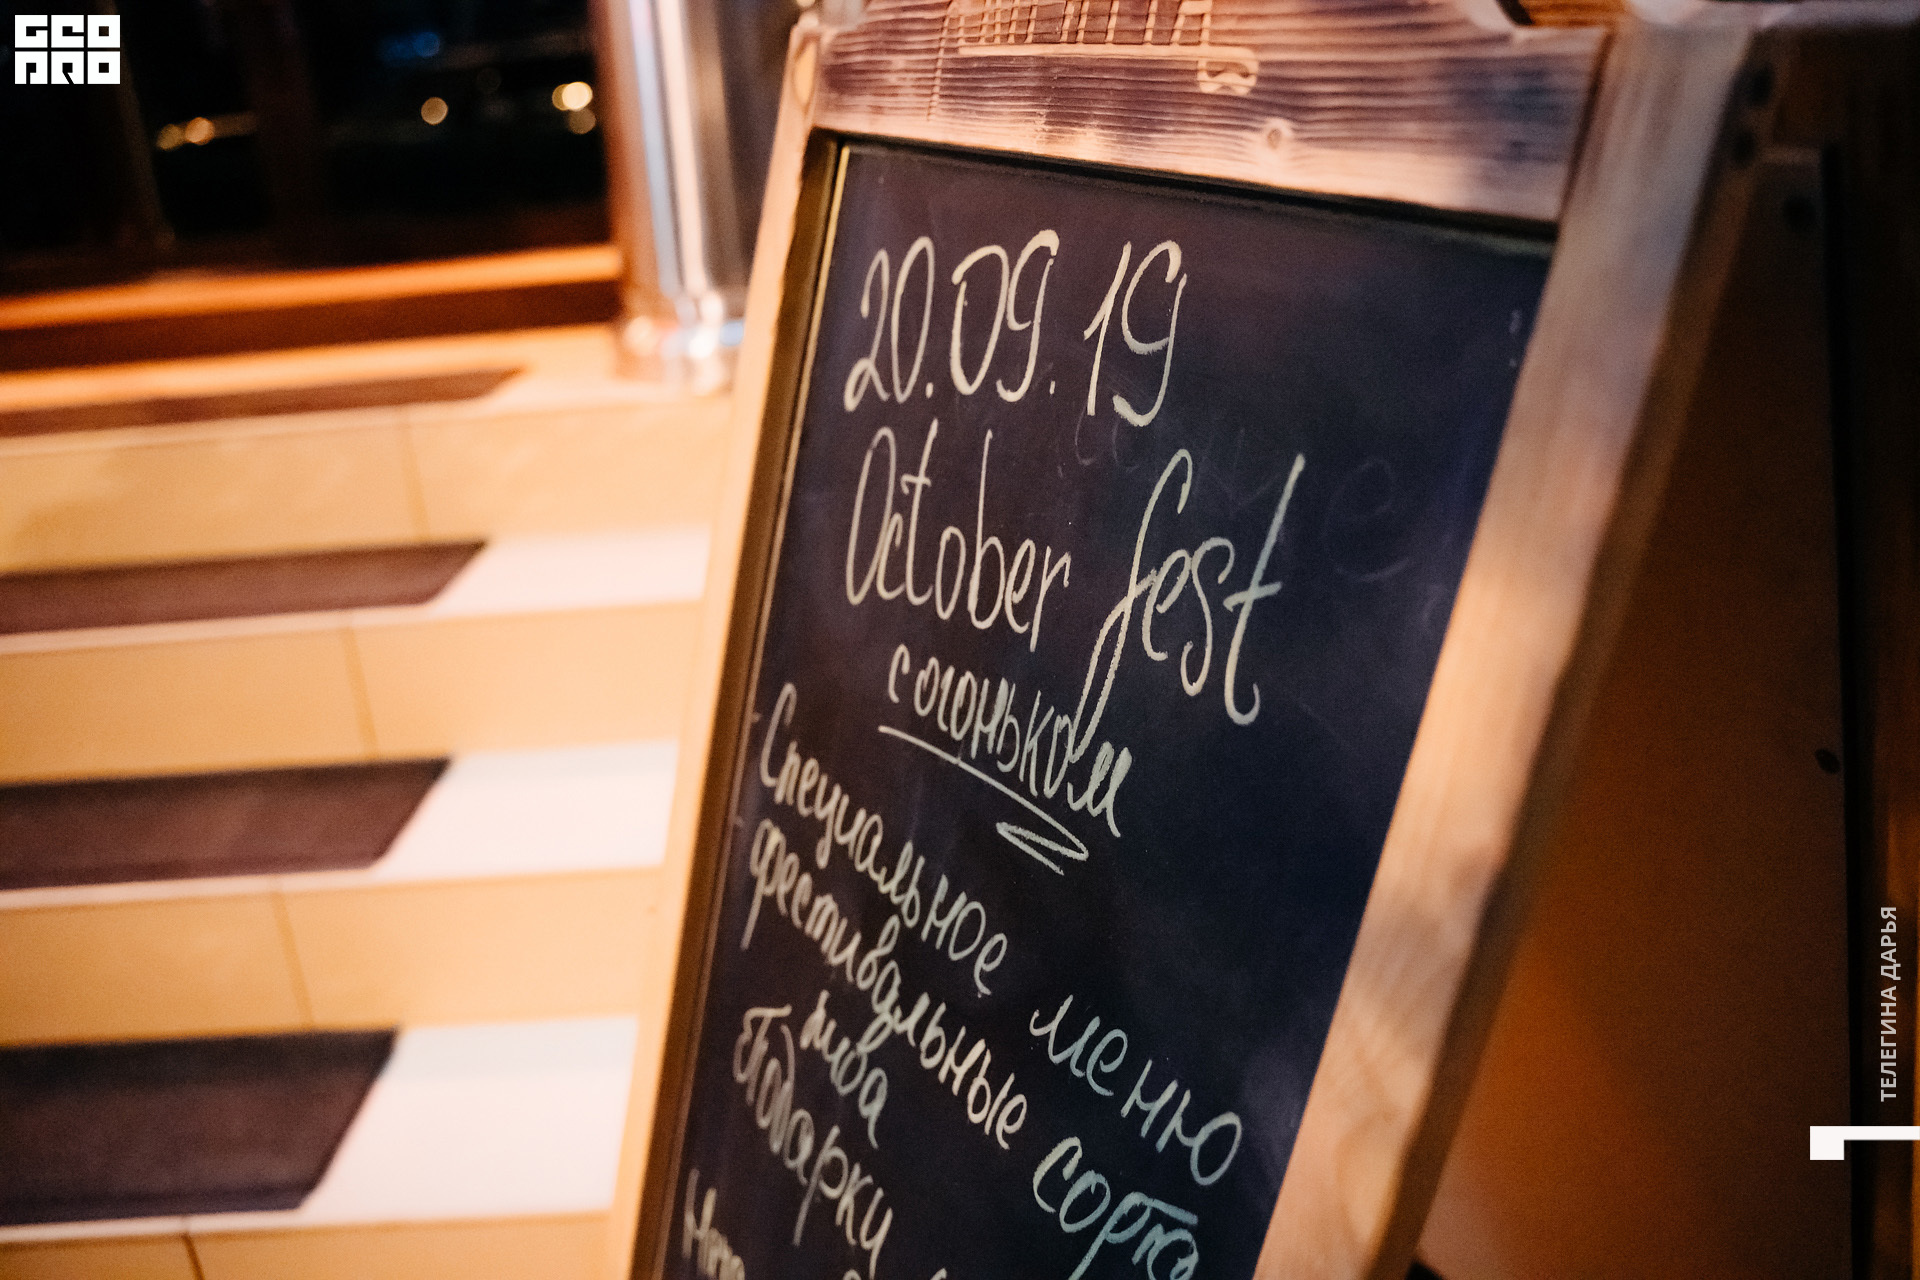 GEO
PRO
20.09.19
October fest
с огоньком
Специальное меню
фестивальные сорта
пива
Подарки
ТЕЛЕГИНА ДАРЬЯ